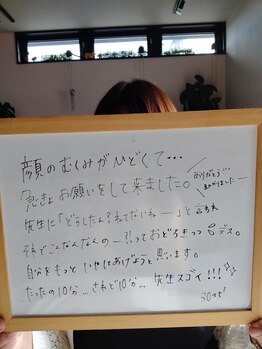 顔のむくみがひどくて…
急きょお願いをして来ました。
ありがとう…
先生に「どうしたん?ねてないねー」と言われ
それでこんななんのー?!っておどろきつつデス。
自分をもっといやしてあげようと思います。
たったの10分…されど10分…先生スゴイ!!!
30代